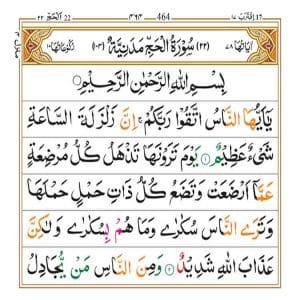 اقترب ١٧ 464 ٤٦٤ الحج ٢٢
اٰيَاتُهَا ٧٨ (٢٢) سُوْرَةُ الْحَجِّ مَدَنِيَّةٌ (١٠٣) رُكُوْعَاتُهَا ١٠
بِسْمِ اللّٰهِ الرَّحْمٰنِ الرَّحِيْمِ
يٰۤاَيُّهَا النَّاسُ اتَّقُوْا رَبَّكُمْ ۚ اِنَّ زَلْزَلَةَ السَّاعَةِ
شَيْءٌ عَظِيْمٌ ۝١ يَوْمَ تَرَوْنَهَا تَذْهَلُ كُلُّ مُرْضِعَةٍ
عَمَّاۤ اَرْضَعَتْ وَتَضَعُ كُلُّ ذَاتِ حَمْلٍ حَمْلَهَا
وَتَرَى النَّاسَ سُكٰرٰى وَمَا هُمْ بِسُكٰرٰى وَلٰكِنَّ
عَذَابَ اللّٰهِ شَدِيْدٌ ۝٢ وَمِنَ النَّاسِ مَنْ يُّجَادِلُ